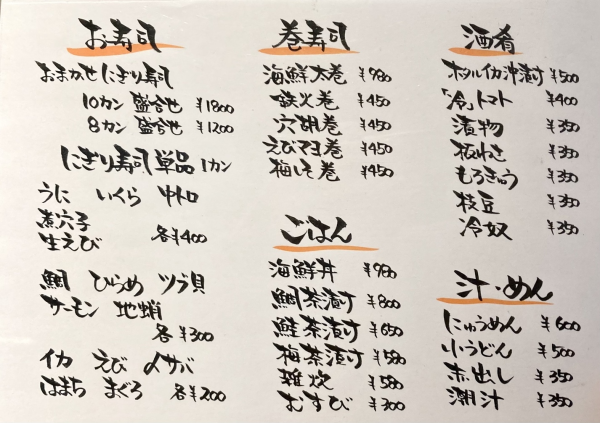 お寿司
おまかせにぎり寿司
10カン 盛合せ ¥1800
8カン 盛合せ ¥1200
にぎり寿司単品 1カン
うに いくら 中トロ
煮穴子
生えび 各¥400
鯛 ひらめ ツブ貝
サーモン 地蛸
各¥300
イカ えび 〆サバ
はまち まぐろ 各¥200
巻寿司
海鮮太巻 ¥980
鉄火巻 ¥450
穴胡巻 ¥450
えびマヨ巻 ¥450
梅しそ巻 ¥450
ごはん
海鮮丼 ¥980
鯛茶漬け ¥800
鮭茶漬け ¥650
梅茶漬け ¥580
雑炊 ¥580
むすび ¥300
酒肴
ホタルイカ沖漬け ¥500
「冷」トマト ¥400
漬物 ¥350
板わさ ¥350
もろきゅう ¥350
枝豆 ¥350
冷奴 ¥350
汁・めん
にゅうめん ¥600
小うどん ¥500
赤出し ¥350
潮汁 ¥350